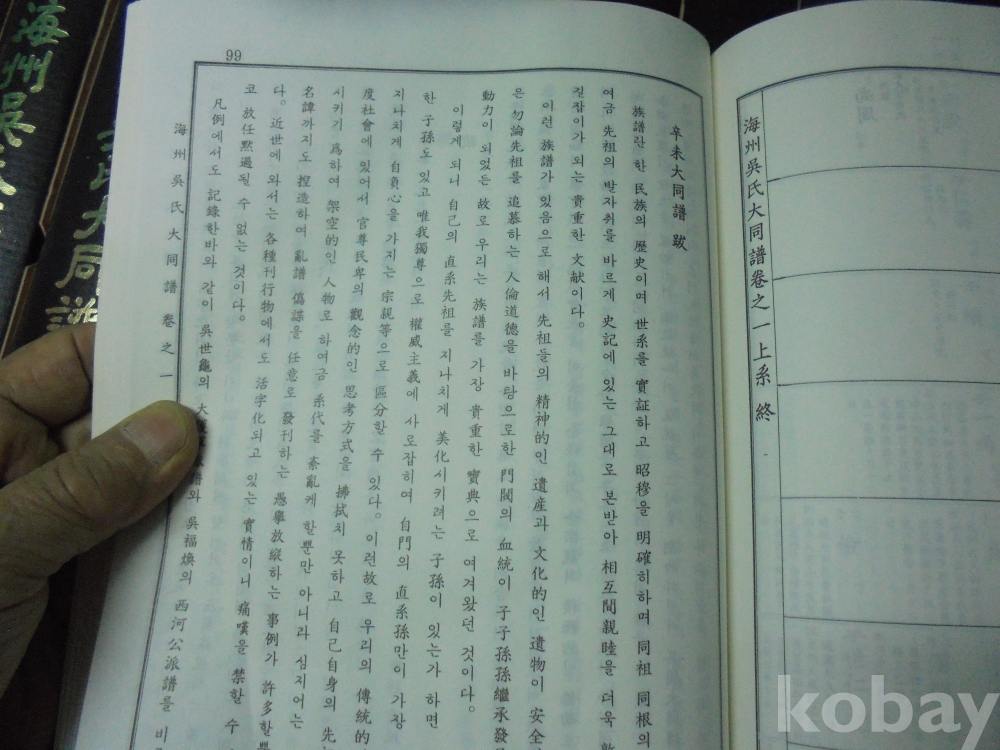 海州吳氏大同譜卷之一上系 終
辛未大同譜 跋
族譜란 한 民族의 歷史이며 世系를 實証하고 昭穆을 明確히하며 同祖 同根의
여금 先祖의 발자취를 바르게 史記에 있는 그대로 본받아 相互間親睦을 더욱
길잡이가 되는 貴重한 文献이다。
이런 族譜가 있음으로 해서 先祖들의 精神的인 遺産과 文化的인 遺物이
은 勿論先祖를 追慕하는 人倫道德을 바탕으로한 門閥의 血統이 子子孫孫繼承發
動力이 되었든 故로 우리는 族譜를 가장 貴重한 寶典으로 여겨왔던 것이다。
이렇게 되니 自己의 直系先祖를 지나치게 美化시키려는 子孫이 있는가 하면
한 子孫도 있고 唯我獨尊으로 權威主義에 사로잡히여 自門의 直系孫만이 가장
지나치게 自負心을 가지는 宗親等으로 區分할 수 있다。이런故로 우리의 傳統的
度社會에 있어서 官尊民卑의 觀念的인 思考方式을 拂拭치 못하고 自己自身의 先
시키기 爲하여 架空的인 人物로 하여금 系代를 紊亂케 할뿐만 아니라 심지어는
名諱까지도 捏造하여 亂譜 僞譜를 任意로 發刊하는 愚擧放縱하는 事例가 許多할뿐
다。近世에 와서는 各種刊行物에서도 活字化되고 있는 實情이니 痛嘆을 禁할 수
코 放任黙過될 수 없는 것이다。
凡例에서도 記錄한바와 같이 吳世龜의 大 譜와 吳福煥의 西河公派譜를
海州吳氏大同譜 卷之一
99
海州吳
大同譜
kobay